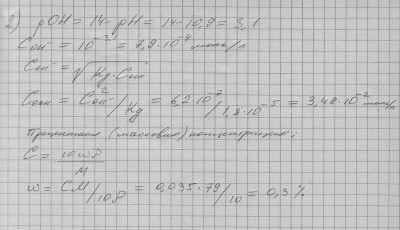 2) pOH = 14 - pH = 14 - 10,9 = 3,1
Cон⁻ = 10⁻³·¹ = 7,9·10⁻⁴ моль/л
Cон⁻ = √Kд·Cон
Cосн = Cон⁻²/Kд = 6,2·10⁻⁷/1,8·10⁻⁵ = 3,48·10⁻² моль/л
Процентная (массовая) концентрация:
C = 10ωρ/M
ω = CM/10ρ = 0,035·79/10 = 0,3%